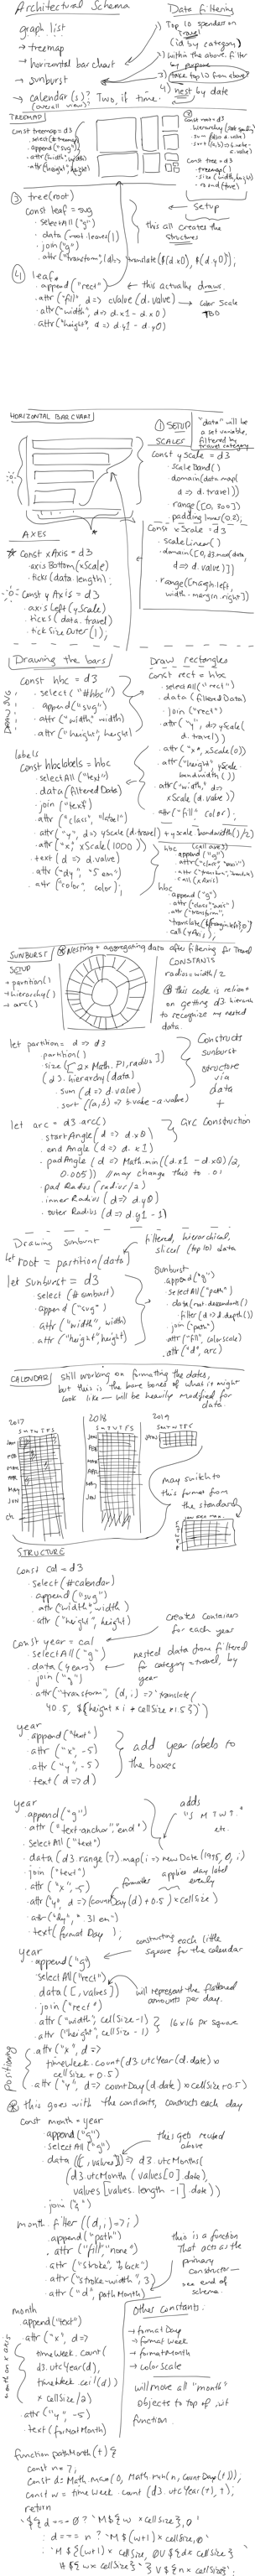 Architectural Schema
graph list
→ treemap
→ horizontal bar chart
→ sunburst
→ calendar(s)? Two, if time.
(overall view)?
Data filtering
1) Top 10 spenders on
travel
(id by category)
2) within the above, filter
by purpose
3) (take top 10 from above)
4) nest by date
TREEMAP
Const treemap = d3
.select(#treemap)
.append("svg")
.attr(width, width)
.attr(height, height)
const root = d3
.hierarchy(
.sum(d => d.value)
.sort((a,b) => b.value
- a.value)
Const tree = d3
.treemap()
.size(width, height)
.round(true)
setup
this all creates the
structures
③ tree(root)
const leaf = svg
.selectAll("g")
.data(root.leaves())
.join("g")
.attr("transform", (d) => `translate(${d.x0}, ${d.y0});
④ leaf
.append("rect")
.attr("fill", d => cvalue(d.value)
.attr("width", d => d.x1 - d.x0)
.attr("height", d => d.y1 - d.y0)
this actually draws.
Color Scale
TBD
HORIZONTAL BAR CHART
① SETUP
"data" will be
a set variable,
filtered by
travel category
SCALES
Const yScale = d3
.scaleBand()
.domain(data.map(
d => d.travel))
.range([0, 300])
.paddingInner(0.2);
Const xScale = d3
.scaleLinear()
.domain([0, d3.max(data,
d => d.value)])
.range([margin.left,
width - margin.right])
AXES
Const xAxis = d3
.axisBottom(xScale)
.ticks(data.length);
Const yAxis = d3
.axisLeft(yScale)
.ticks(data.travel)
.tickSizeOuter(1);
Drawing the bars
DRAW SVG
const hbc = d3
.select("#hbc")
.append("svg")
.attr("width", width)
.attr("height", height)
labels
Const hbclabels = hbc
.selectAll("text")
.data(filteredData)
.join("text")
.attr("class", "label")
.attr("y", d => yScale(d.travel) + yScale.bandwidth()/2)
.attr("x", xScale(1000))
.text(d => d.value)
.attr("dy", ".5em")
.attr("color", color);
Draw rectangles
Const rect = hbc
.selectAll("rect")
.data(filteredData)
.join("rect")
.attr("y", d => yScale(
d.travel))
.attr("x", xScale(0))
.attr("height", yScale.
bandwidth())
.attr("width", d =>
xScale(d.value))
.attr("fill", color);
hbc (call axes)
.append("g")
.attr("class", "axis")
.attr("transform",
.call(xAxis)
hbc
.append("g")
.attr("class", "axis")
.attr("transform",
`translate(${margin.left},0)
.call(yAxis);
SUNBURST
Nesting + aggregating data after filtering for Travel
SETUP
→ partition()
→ hierarchy()
→ arc()
CONSTANTS
radius = width/2
this code is reliant
on getting d3.hierarchy
to recognize my nested
data.
let partition = d => d3
.partition()
.size([2 * Math.PI, radius])
(d3.hierarchy(data)
.sum(d => d.value)
.sort((a,b) => b.value - a.value)
Constructs
sunburst
structure
via
data
+
let arc = d3.arc()
.startAngle(d => d.x0)
.endAngle(d => d.x1)
.padAngle(d => Math.min((d.x1 - d.x0)/2,
0.005)) //may change this to .01
.padRadius(radius/2)
.innerRadius(d => d.y0)
.outerRadius(d => d.y1 - 1)
arc construction
Drawing sunburst
filtered, hierarchical,
sliced (top 10) data
let root = partition(data)
let sunburst = d3
.select(#sunburst)
.append("svg")
.attr("width", width)
.attr("height", height)
sunburst
.append("g")
.selectAll("path")
.data(root.descendants()
.filter(d => d.depth))
.join("path")
.attr("fill", colorscale)
.attr("d", arc)
CALENDAR
still working on formatting the dates,
but this is the bare bones of what it might
look like — will be heavily modified for
data.
2017
2018
2019
S M T W T F S
S M T W T F S
S M T W T F S
JAN
FEB
MAR
APR
MAY
JUN
JAN
FEB
MAR
APR
MAY
JUN
JAN
may switch to
this format from
the standard
STRUCTURE
Const cal = d3
.select(#calendar)
.append("svg")
.attr("width", width)
.attr("height", height)
creates containers
for each year
Const year = cal
.selectAll("g")
.data(years)
.join("g")
.attr("transform", (d,i) => `translate(
40.5, ${height * i + cellSize * 1.5})`)
nested data from filtered
for category = travel, by
year
year
.append("text")
.attr("x", -5)
.attr("y", -5)
.text(d => d)
add year labels to
the boxes
year
.append("g")
.attr("text-anchor", "end")
.selectAll("text")
.data(d3.range(7).map(i => new Date(1995, 0, i)
.join("text")
.attr("x", -5)
.attr("y", d => (countDay(d) + 0.5) * cellSize
.attr("dy", ".31em")
.text(formatDay);
adds
"S M T W T.."
etc.
formatter applies day label
evenly
year
.append("g")
.selectAll("rect")
.data([, values])
.join("rect")
.attr("width", cellSize - 1)
.attr("height", cellSize - 1)
.attr("x", d =>
timeWeek.count(d3.utcYear(d.date) *
cellSize + 0.5)
.attr("y", d => countDay(d.date) * cellSize + 0.5)
constructing each little
square for the calendar
will represent the flattened
amounts per day.
16x16 px square
Positioning
this goes with the constants, constructs each day
Const month = year
.append("g")
.selectAll("g")
.data([, values]) => d3.utcMonths(
(d3.utcMonth(values[0].date),
values[values.length - 1].date))
.join("g")
this gets reused
above
month.filter((d,i) => i)
.append("path")
.attr("fill", "none")
.attr("stroke", "black")
.attr("stroke-width", 3)
.attr("d", pathMonth)
this is a function
that acts as the
primary
constructor —
see end of
schema.
month
.append("text")
.attr("x", d =>
timeWeek.count(
d3.utcYear(d),
timeWeek.ceil(d))
* cellSize/2)
.attr("y", -5)
.text(formatMonth)
Other constants.
→ formatDay
→ formatWeek
→ formatMonth
→ color scale
will move all "month"
objects to top of init
function.
function pathMonth(t) {
const n = 7;
Const d = Math.max(0, Math.min(n, countDay(t)));
Const w = timeWeek.count(d3.utcYear(t), t);
return
`${d === 0 ? `M${w * cellSize},0`
: d === n ? `M${(w+1) * cellSize},0`
: `M${(w+1) * cellSize},0V${d * cellSize}
H${w * cellSize}`}V${n * cellSize}`;